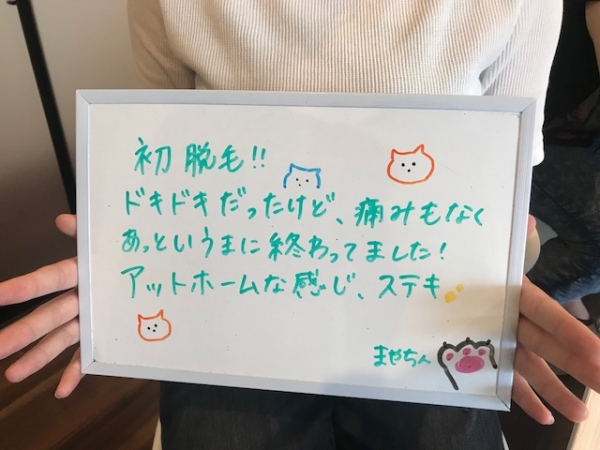 初脱毛!!
ドキドキだったけど、痛みもなく
あっというまに終わってました!
アットホームな感じ、ステキ
まやちん